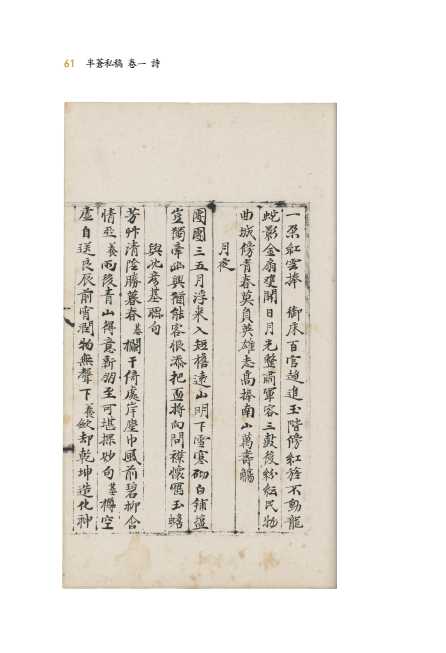 61 半蒼私稿 卷一 詩
一朶紅雲捧 御床百官趨進玉階傍紅旌不動龍
蛇影金扇雙開日月光整軍容三鼓後紛紜民物
曲城傍青春莫負英雄志高捧南山萬壽觴
月夜
團團三五月浮來入短檐遠山明下雪寒砌白鋪鹽
豈獨牽幽興猶能客恨添把盃將向問襟懷囑玉蟾
與沈彦基聯句
芳草清陰勝暮春基欄干倚處岸塵巾風前碧柳含
情養雨後青山得意新物至可堪探妙句基樽空
自送良辰前宵潤物無聲下養斂却乾坤造化神